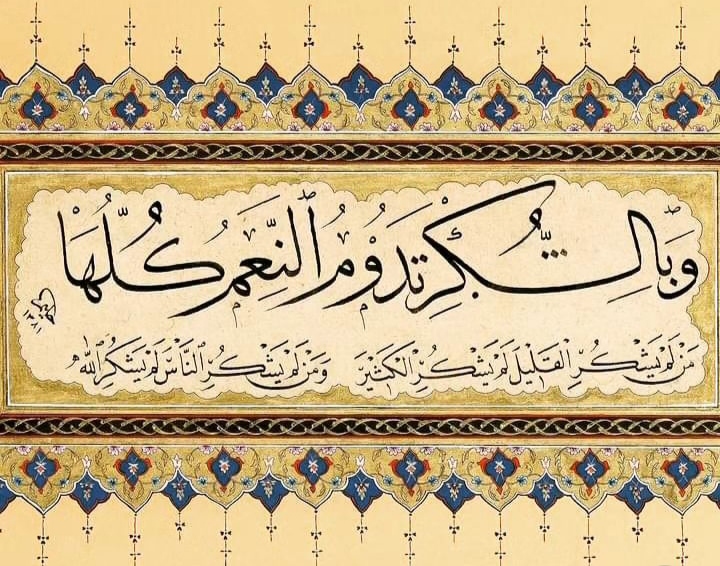 وَبِالشُّكْرِ تَدُوْمُ ٱلنِّعَمُ كُلُّهَا
مَنْ لَمْ يَشْكُرِ الْقَلِيْلَ لَمْ يَشْكُرِ الْكَثِيْرَ وَمَنْ لَمْ يَشْكُرِ النَّاسَ لَمْ يَشْكُرِ ٱللّٰهَ